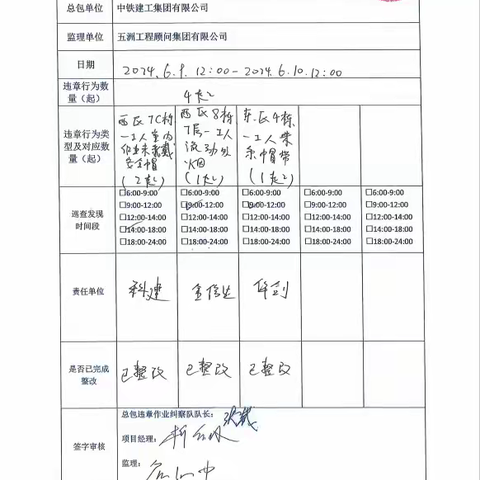 总包单位 中铁建工集团有限公司
监理单位 五洲工程顾问集团有限公司
日期 2024.6.9.12:00-2024.6.10.12:00
违章行为数
量（起） 4起
违章行为类
型及对应数
量（起）
西区7C栋
一工人室内
作业未佩戴
安全帽
（2起）
西区8栋
7层一工人
流动吸
烟
（1起）
东区4栋
一工人未
系帽带
（1起）
巡查发现
时间段
□6:00-9:00 □6:00-9:00 □6:00-9:00 □6:00-9:00 □6:00-9:00
□9:00-12:00 □9:00-12:00 □9:00-12:00 □9:00-12:00 □9:00-12:00
□12:00-14:00 □12:00-14:00 □12:00-14:00 □12:00-14:00 □12:00-14:00
□14:00-18:00 □14:00-18:00 □14:00-18:00 □14:00-18:00 □14:00-18:00
□18:00-24:00 □18:00-24:00 □18:00-24:00 □18:00-24:00 □18:00-24:00
责任单位 科建
是否已完成
整改
已整改 已整改 已整改
总包违章作业纠察队队长：
签字审核
项目经理：
监理：